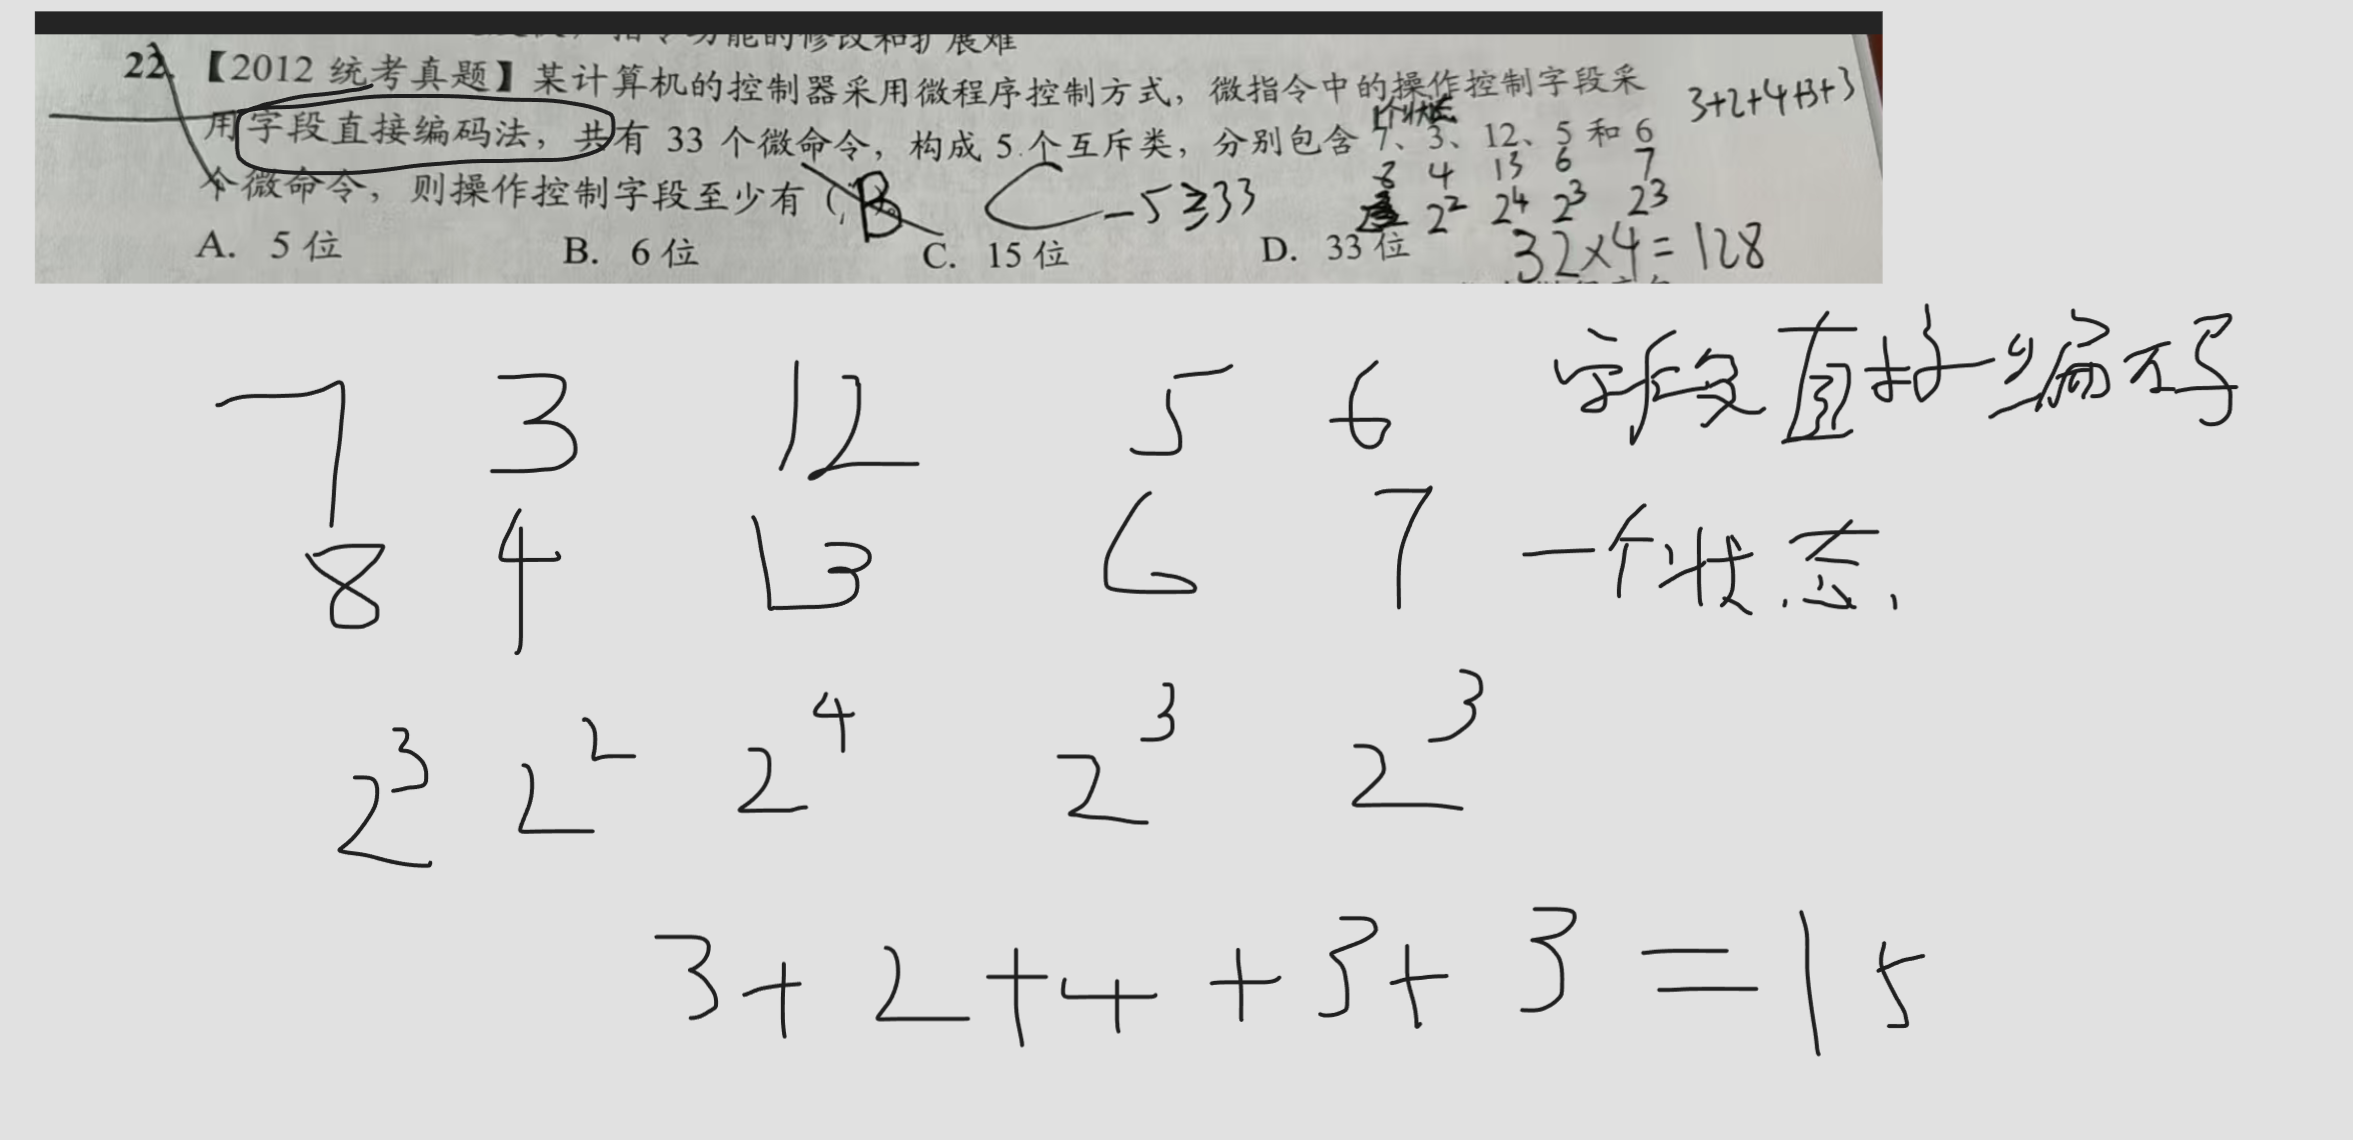 指令功能的修改和扩展难
22.【2012 统考真题】某计算机的控制器采用微程序控制方式，微指令中的操作控制字段采
3+2+4+3+3
用字段直接编码法，共有 33 个微命令，构成 5 个互斥类，分别包含 7、3、12、5 和 6
1个状态
8 4 13 6 7
个微命令，则操作控制字段至少有（ ）。
B C -5≥33
2² 2⁴ 2³ 2³
A. 5 位 B. 6 位 C. 15 位 D. 33 位
32×4=128
字段直接编码
7 3 12 5 6
8 4 13 6 7 一个状态
2³ 2² 2⁴ 2³ 2³
3+2+4+3+3=15